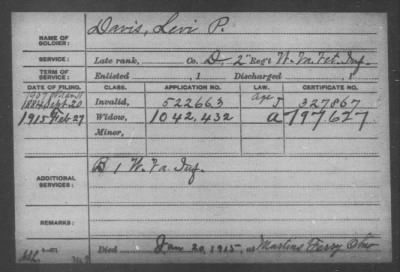 NAME OF SOLDIER: Davis, Levi P.
SERVICE: Late rank, Co. D, 2" Reg't W. Va. Vet. Inf.
TERM OF SERVICE: Enlisted , 1 Discharged , 1
DATE OF FILING. CLASS. APPLICATION NO. LAW. CERTIFICATE NO.
1884 Sept. 20 Invalid, 522663 Age J 327867
1915 Feb 27 Widow, 1042,432 a 797627
Minor,
ADDITIONAL SERVICES: B 1 W. Va. Inf.
REMARKS:
Died Jan 20, 1915, at Martins Ferry Ohio